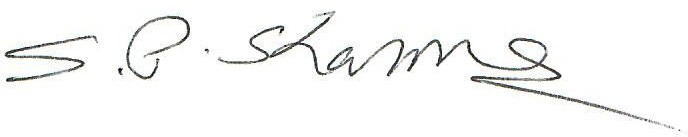 S.P. Sharma